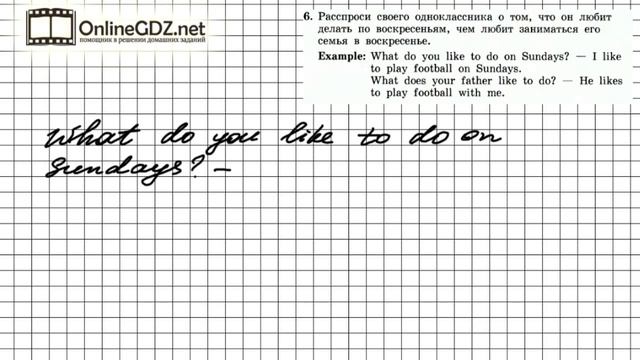 OnlineGDZ.net
помощник в решении домашних заданий
6. Расспроси своего одноклассника о том, что он любит
делать по воскресеньям, чем любит заниматься его
семья в воскресенье.
Example: What do you like to do on Sundays? — I like
to play football on Sundays.
What does your father like to do? — He likes
to play football with me.
What do you like to do on
Sundays? –